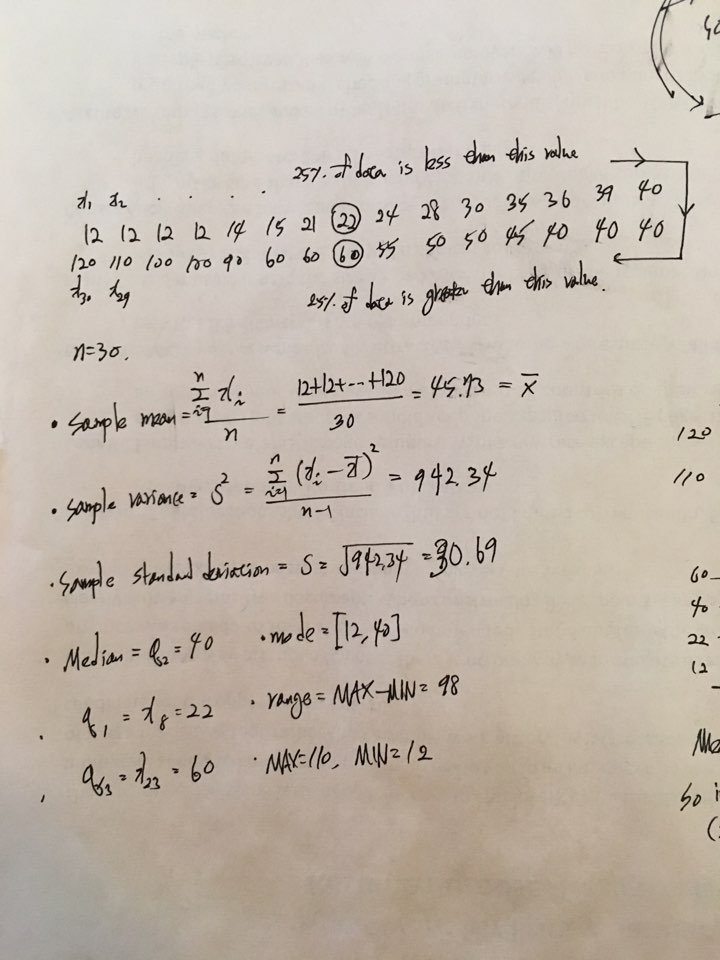 25% of data is less than this value
x₁ x₂ . . . .
12 12 12 12 14 15 21 22 24 28 30 35 36 39 40
120 110 100 100 90 60 60 60 55 50 50 45 40 40 40
x₃₀ x₂₉
25% of data is greater than this value.
n=30.
• Sample mean = Σⁿᵢ₌₁ xᵢ / n = 12+12+---+120 / 30 = 45.73 = x̄
• Sample variance = S² = Σⁿᵢ₌₁ (xᵢ - x̄)² / n-1 = 942.34
• Sample standard deviation = S = √942.34 = 30.69
• Median = q₂ = 40 • mode = [12, 40]
• q₁ = x₈ = 22 • range = MAX-MIN = 98
• q₃ = x₂₃ = 60 • MAX=110, MIN=12
120
110
60
40
22
12
So